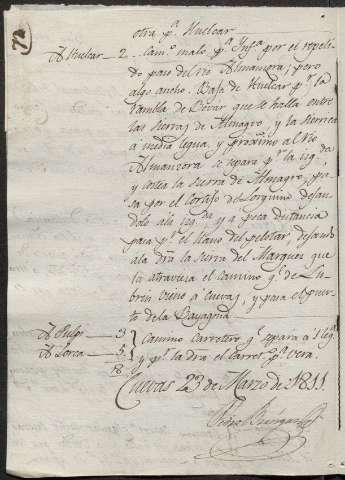 otra pª Huelcar
A Huelcar — 2 . Camº malo pª Infª por el repeti-
do paso del rio Almanzora; pero
algo ancho. Baja de Huelcar pr la
rambla de Bovar que se halla entre
las sierras de Almagro, y la sierrica
a media legua, y proximo al Rio
Almanzora se separa pr la izqda
y costea la sierra de Almagro, pa-
sa por el Cortijo de Lorquino dejan-
dolo ala izqda y a poca distancia
pasa pr el llano del pelotar, dejando
ala dra la sierra del Marques que
la atraviesa el camino qe de Lu-
brin viene a Cuevas, y para el puer-
to de la
A Pulpi — 3 } Camino carretero qe separa a 1 legª
A Lorca — 5 } y pr la dra el Carretº pª Vera.
18
Cuevas 23 de Marzo de 1811